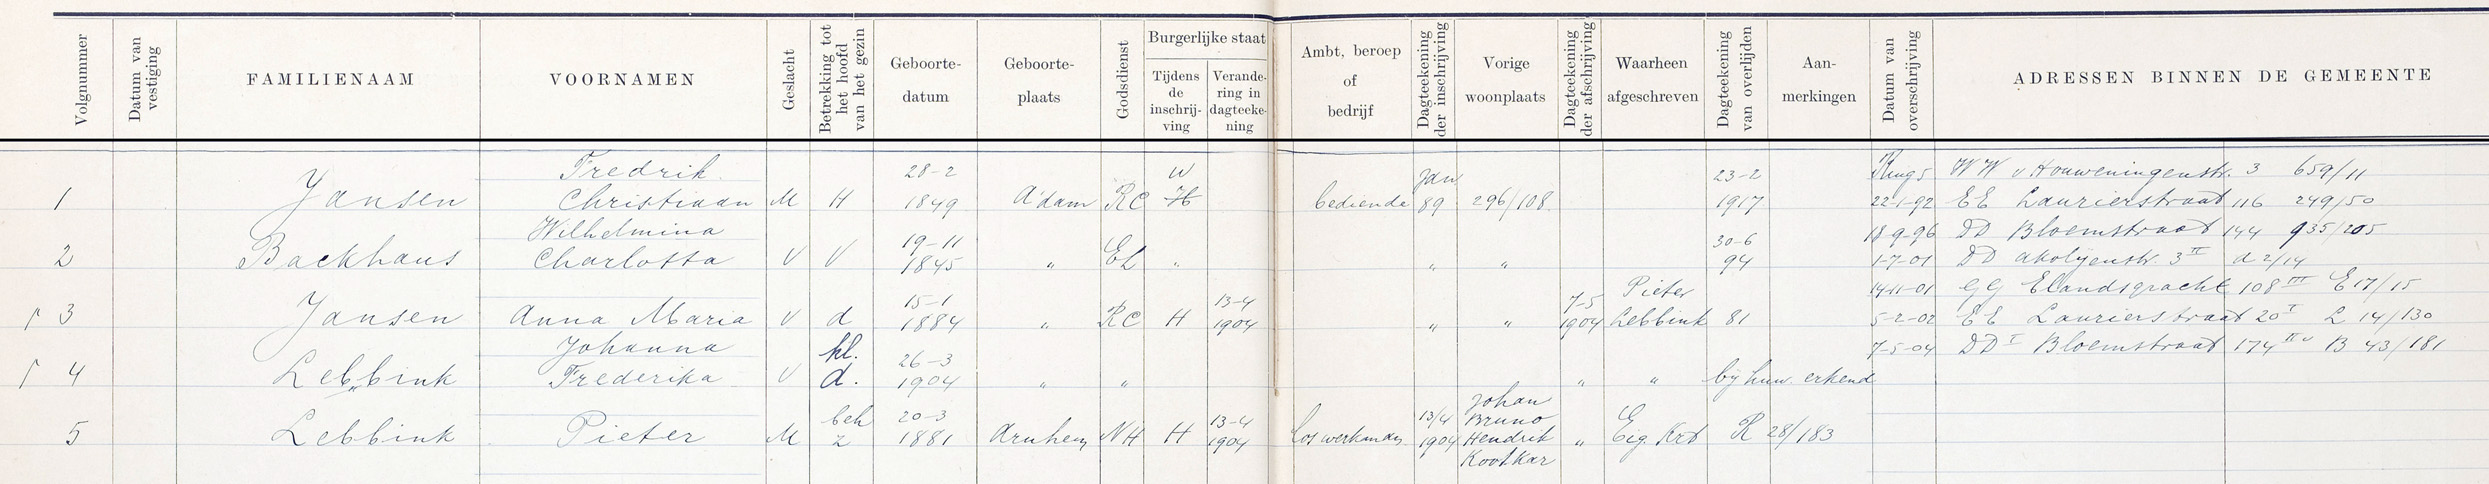 Volgnummer
Datum van vestiging
FAMILIENAAM
VOORNAMEN
Geslacht
Betrekking tot het hoofd van het gezin
Geboorte-datum
Geboorte-plaats
Godsdienst
Burgerlijke staat
Tijdens de inschrij-ving
Verande-ring in dagteeke-ning
Ambt, beroep of bedrijf
Dagteekening der inschrijving
Vorige woonplaats
Dagteekening der afschrijving
Waarheen afgeschreven
Dagteekening van overlijden
Aan-merkingen
Datum van overschrijving
ADRESSEN BINNEN DE GEMEENTE
1 Jansen Fredrik Christiaan M H 28-2 1849 A'dam RC W H bediende Jan 89 296/108 23-2 1917
2 Backhaus Wilhelmina Charlotta V V 19-11 1845 " EL " " " 30-6 94
3 Jansen Anna Maria V d 15-1 1884 " RC H 13-4 1904 " " 7-5 1904 Pieter Lebbink 81
4 Lebbink Johanna Frederika V kl. d. 26-3 1904 " " " " bij huw. erkend
5 Lebbink Pieter M beh z 20-3 1881 Arnhem NH H 13-4 1904 los werkman 13/4 1904 Johan Bruno Hendrik Kootkar " Eig Krt R 28/183
WW v Houweningenstr. 3 659/11
22-1-92 EE Laurierstraat 116 249/50
18-9-96 DD Bloemstraat 144 935/205
1-7-01 DD Akolijenstr. 3 II A 2/14
14-11-01 GG Elandsgracht 108 III E 17/15
5-2-02 EE Laurierstraat 20 I L 14/130
7-5-04 DD I Bloemstraat 174 II B 43/181